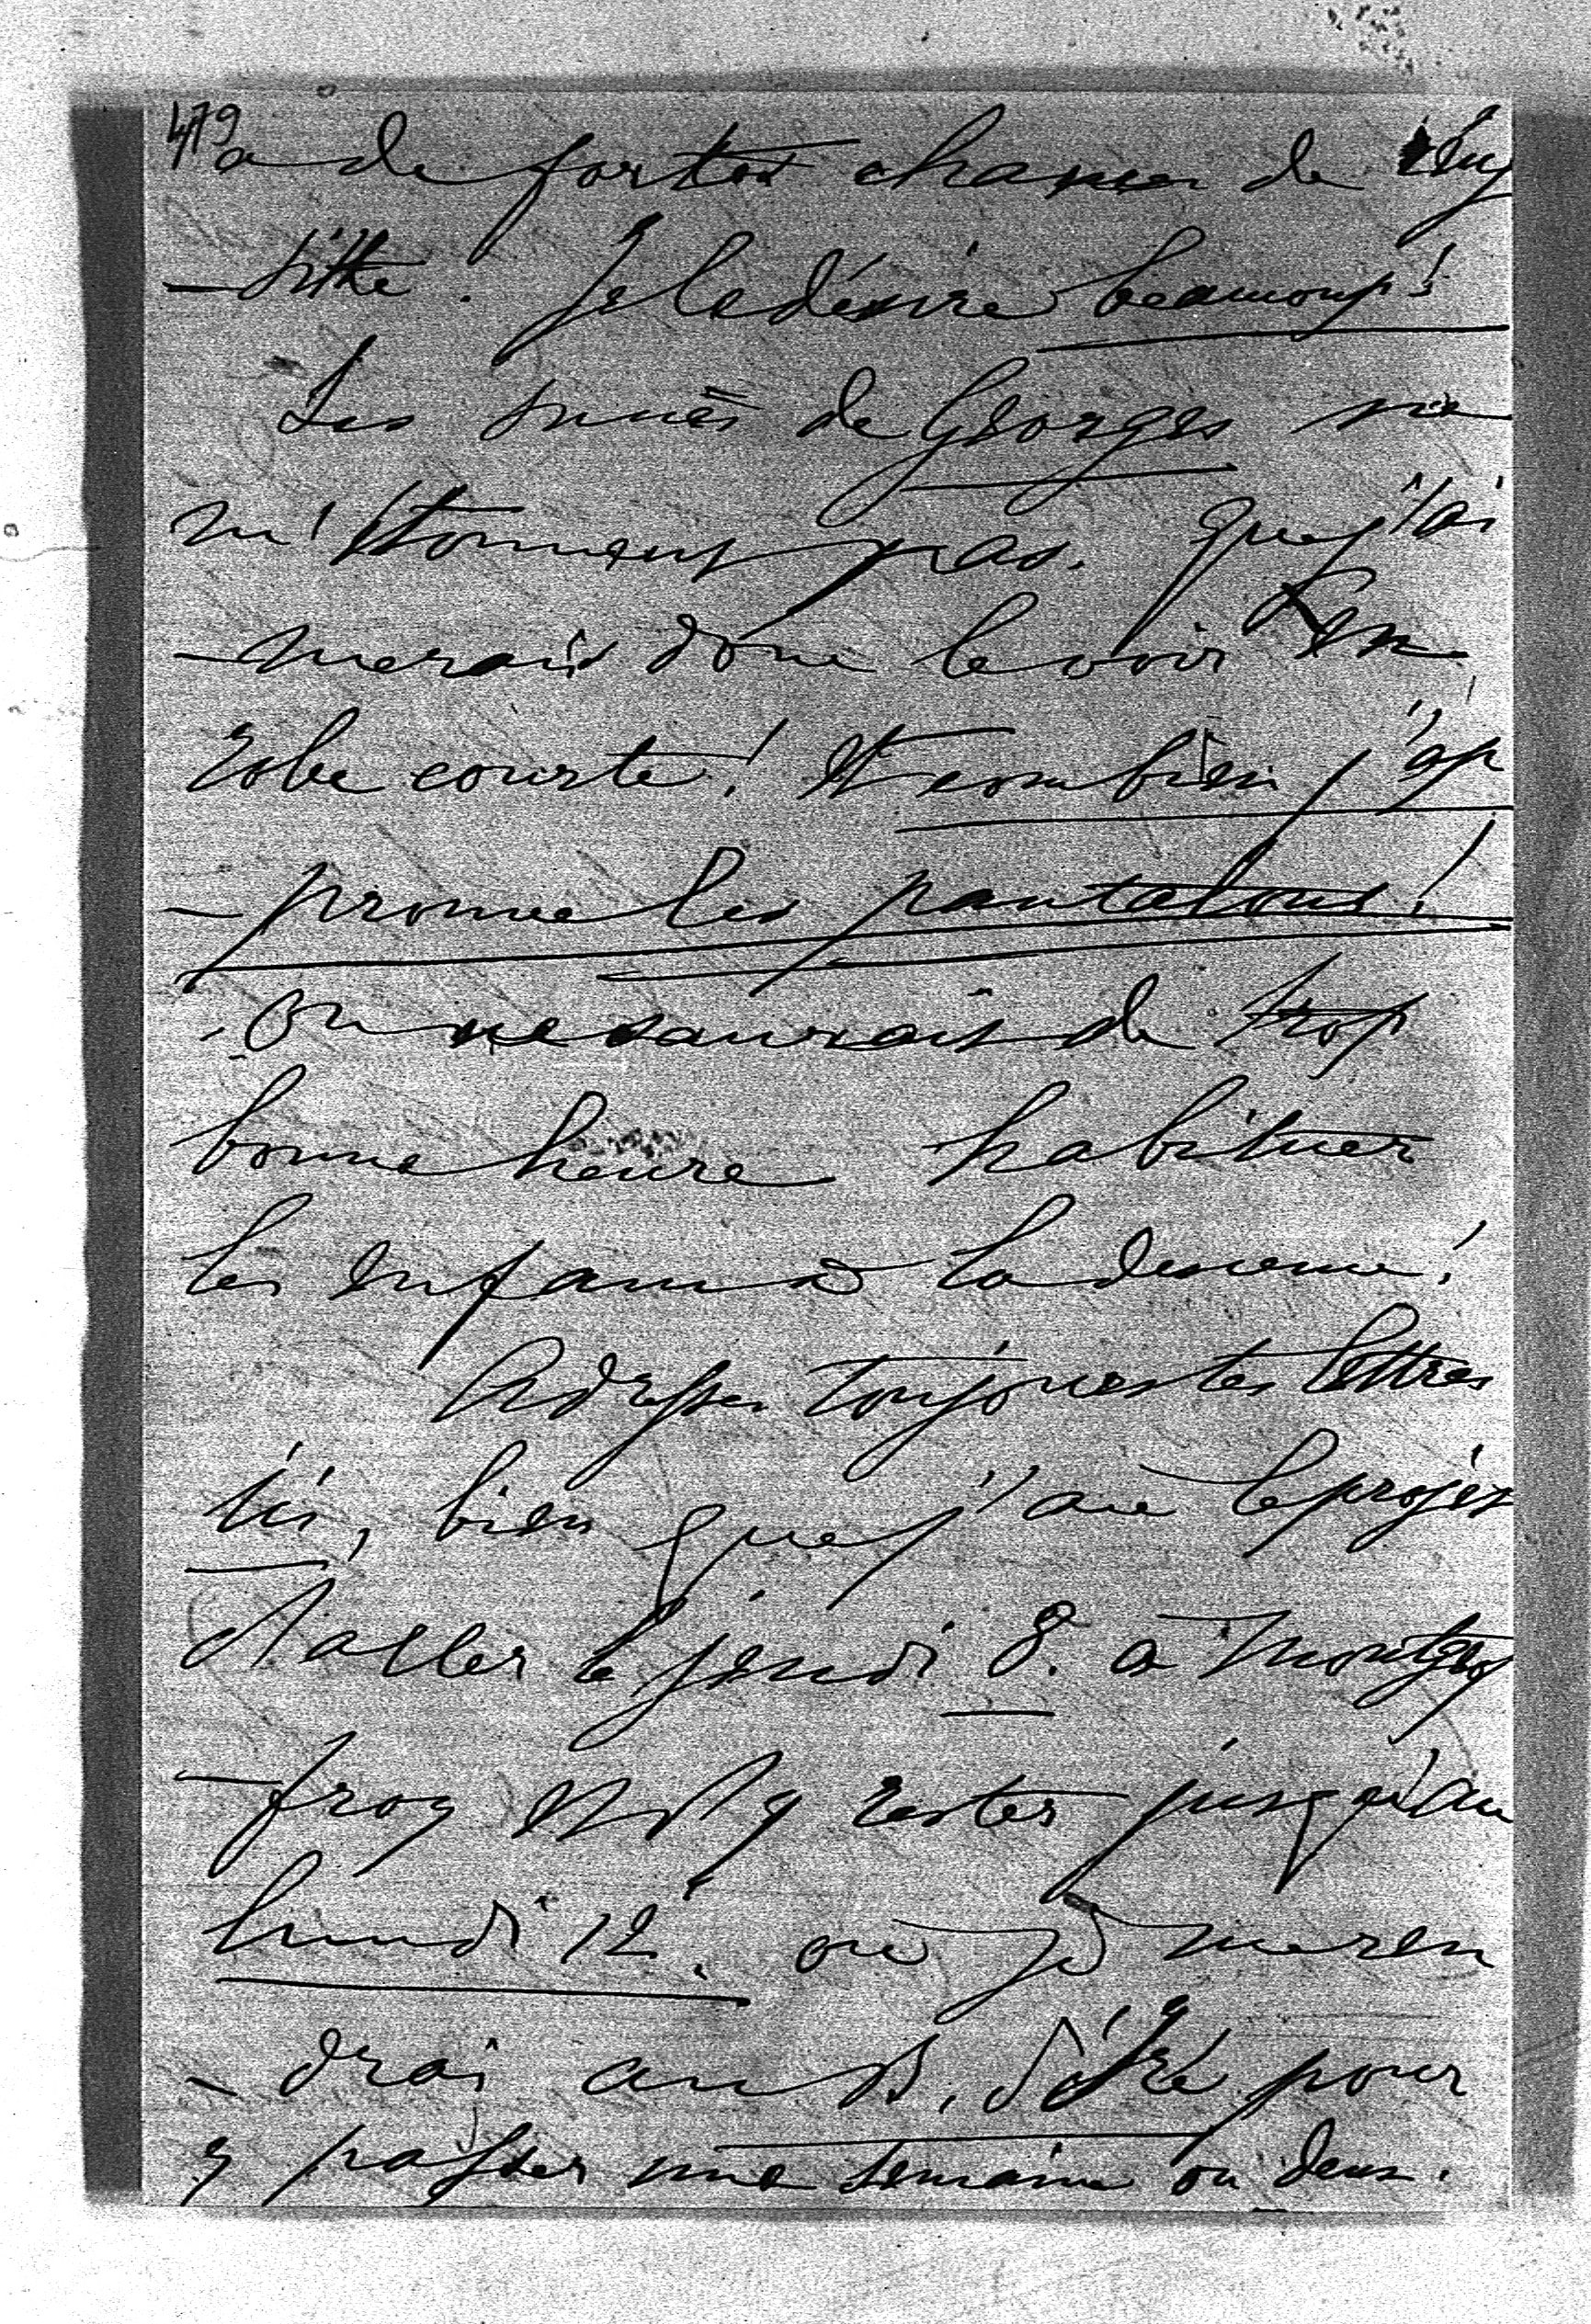 479
a de fortes chances de réus
-site. Je le désire beaucoup!
Les succès de Georges ne
m'étonnent pas. Que j'ai
-merais donc le voir en
robe courte! Et combien j'ap
-prouve les pantalons!
On ne saurait de trop
bonne heure habituer
les enfants à la décence!
Adresse toujours tes lettres
ici, bien que j'aie le projet
d'aller le jeudi 8. à Montgef
-froy et d'y rester jusqu'au
lundi 12. où je me ren
-drai au B. d'été pour
y passer une semaine ou deux.